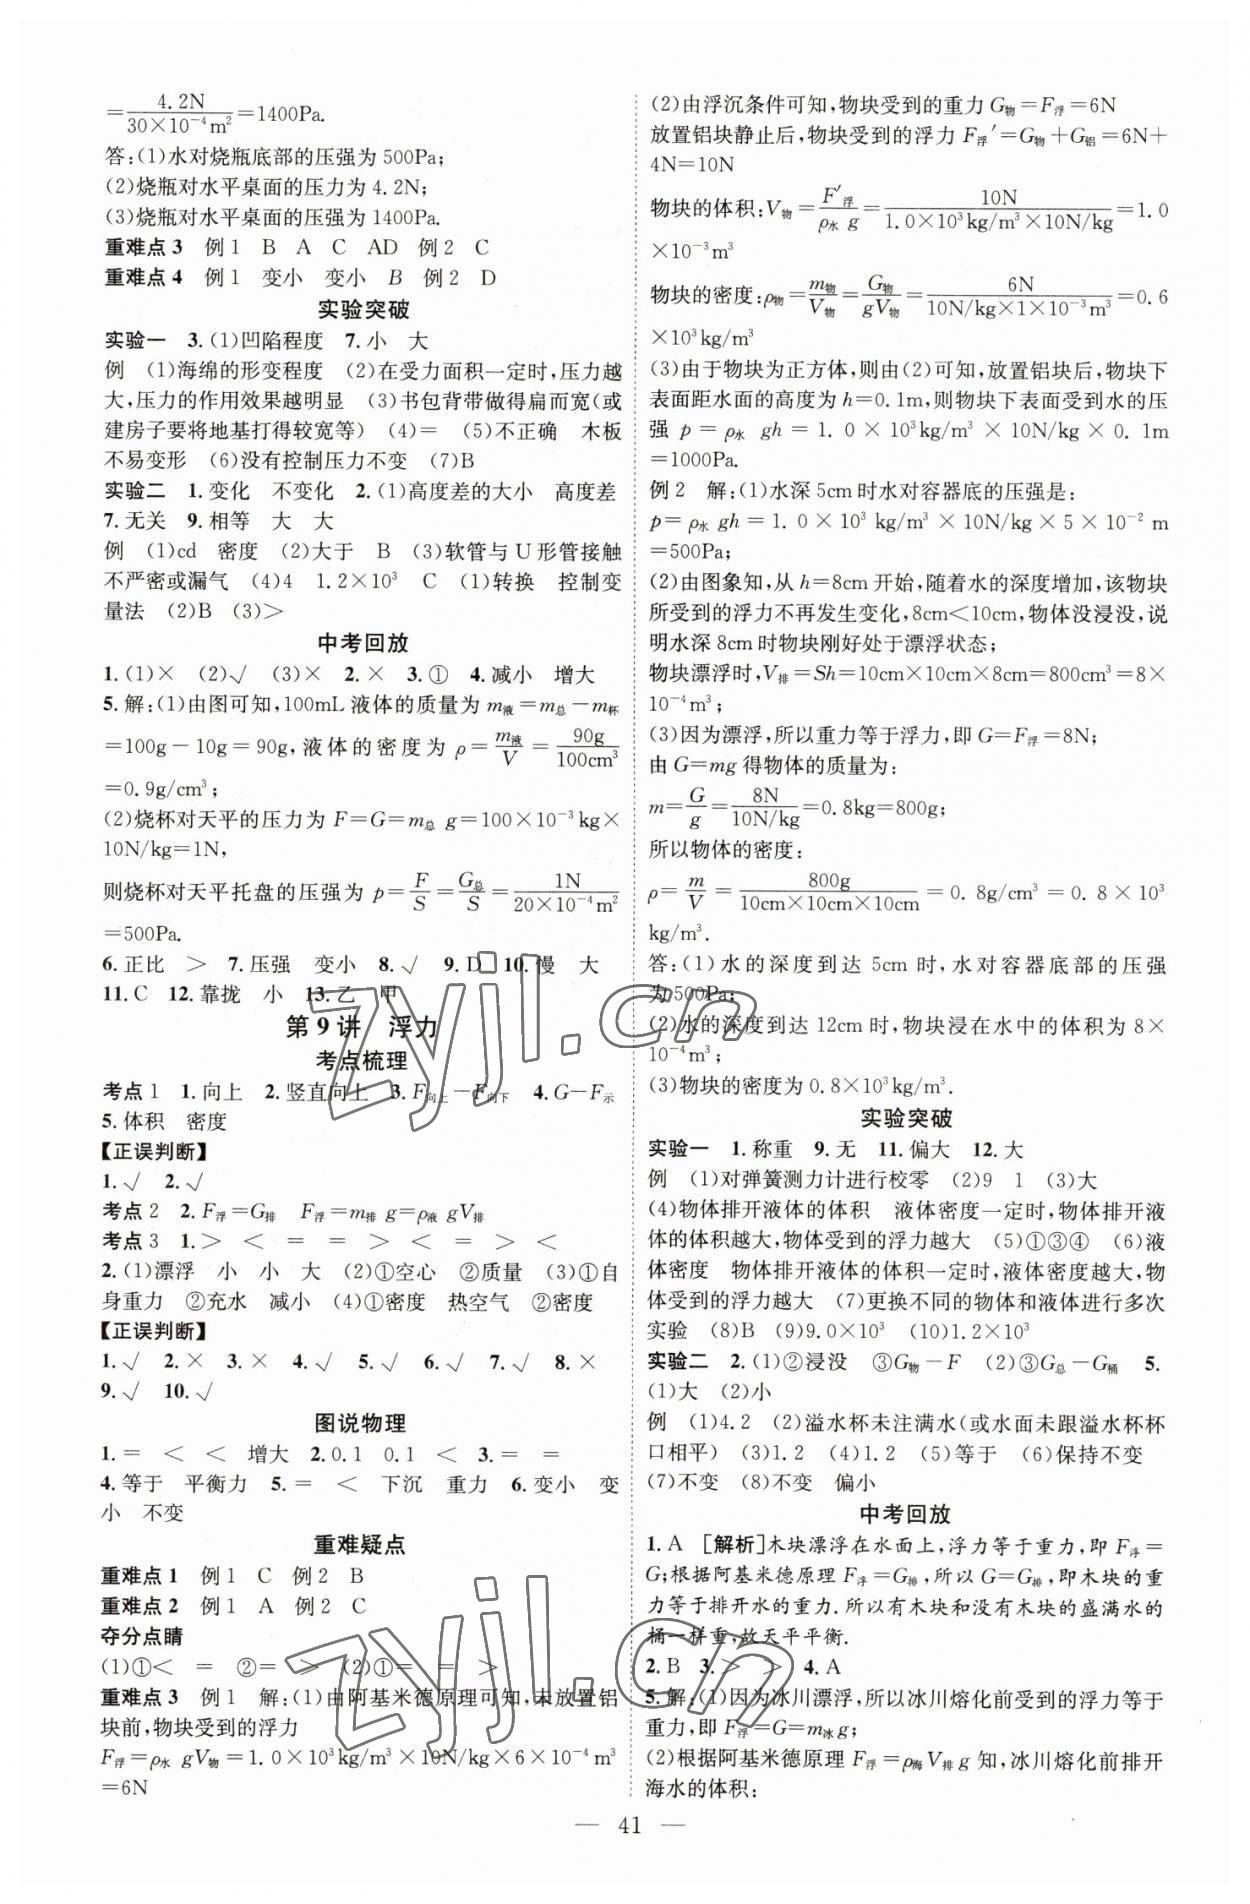 =4.2N/(30×10⁻⁴m²)=1400Pa.
答:(1)水对烧瓶底部的压强为500Pa;
(2)烧瓶对水平桌面的压力为4.2N;
(3)烧瓶对水平桌面的压强为1400Pa.
重难点3 例1 B A C AD 例2 C
重难点4 例1 变小 变小 B 例2 D
实验突破
实验一 3.(1)凹陷程度 7.小 大
例 (1)海绵的形变程度 (2)在受力面积一定时,压力越
大,压力的作用效果越明显 (3)书包背带做得扁而宽(或
建房子要将地基打得较宽等) (4)= (5)不正确 木板
不易变形 (6)没有控制压力不变 (7)B
实验二 1.变化 不变化 2.(1)高度差的大小 高度差
7.无关 9.相等 大 大
例 (1)cd 密度 (2)大于 B (3)软管与U形管接触
不严密或漏气 (4)4 1.2×10³ C (1)转换 控制变
量法 (2)B (3)>
中考回放
1.(1)× (2)√ (3)× 2.× 3.① 4.减小 增大
5.解:(1)由图可知,100mL液体的质量为m液=m总-m杯
=100g-10g=90g,液体的密度为ρ=m液/V=90g/100cm³
=0.9g/cm³;
(2)烧杯对天平的压力为F=G=m总 g=100×10⁻³kg×
10N/kg=1N,
则烧杯对天平托盘的压强为p=F/S=G总/S=1N/(20×10⁻⁴m²)
=500Pa.
6.正比 > 7.压强 变小 8.√ 9.D 10.慢 大
11.C 12.靠拢 小 13.乙 甲
第9讲 浮力
考点梳理
考点1 1.向上 2.竖直向上 3.F向上-F向下 4.G-F示
5.体积 密度
【正误判断】
1.√ 2.√
考点2 2.F浮=G排 F浮=m排 g=ρ液 gV排
考点3 1.> < = = > < = > <
2.(1)漂浮 小 小 大 (2)①空心 ②质量 (3)①自
身重力 ②充水 减小 (4)①密度 热空气 ②密度
【正误判断】
1.√ 2.× 3.× 4.√ 5.√ 6.√ 7.√ 8.×
9.√ 10.√
图说物理
1.= < < 增大 2.0.1 0.1 < 3.= =
4.等于 平衡力 5.= < 下沉 重力 6.变小 变
小 不变
重难疑点
重难点1 例1 C 例2 B
重难点2 例1 A 例2 C
夺分点睛
(1)①< = ②= > (2)①= = >
重难点3 例1 解:(1)由阿基米德原理可知,未放置铝
块前,物块受到的浮力
F浮=ρ水 gV物=1.0×10³kg/m³×10N/kg×6×10⁻⁴m³
=6N
(2)由浮沉条件可知,物块受到的重力G物=F浮=6N
放置铝块静止后,物块受到的浮力F浮′=G物+G铝=6N+
4N=10N
物块的体积:V物=F′浮/(ρ水 g)=10N/(1.0×10³kg/m³×10N/kg)=1.0
×10⁻³m³
物块的密度:ρ物=m物/V物=G物/gV物=6N/(10N/kg×1×10⁻³m³)=0.6
×10³kg/m³
(3)由于物块为正方体,则由(2)可知,放置铝块后,物块下
表面距水面的高度为h=0.1m,则物块下表面受到水的压
强p=ρ水 gh=1.0×10³kg/m³×10N/kg×0.1m
=1000Pa.
例2 解:(1)水深5cm时水对容器底的压强是:
p=ρ水 gh=1.0×10³ kg/m³×10N/kg×5×10⁻² m
=500Pa;
(2)由图象知,从h=8cm开始,随着水的深度增加,该物块
所受到的浮力不再发生变化,8cm<10cm,物体没浸没,说
明水深8cm时物块刚好处于漂浮状态;
物块漂浮时,V排=Sh=10cm×10cm×8cm=800cm³=8×
10⁻⁴m³;
(3)因为漂浮,所以重力等于浮力,即G=F浮=8N;
由G=mg得物体的质量为:
m=G/g=8N/(10N/kg)=0.8kg=800g;
所以物体的密度:
ρ=m/V=800g/(10cm×10cm×10cm)=0.8g/cm³=0.8×10³
kg/m³.
答:(1)水的深度到达5cm时,水对容器底部的压强
为500Pa;
(2)水的深度到达12cm时,物块浸在水中的体积为8×
10⁻⁴m³;
(3)物块的密度为0.8×10³kg/m³.
实验突破
实验一 1.称重 9.无 11.偏大 12.大
例 (1)对弹簧测力计进行校零 (2)9 1 (3)大
(4)物体排开液体的体积 液体密度一定时,物体排开液
体的体积越大,物体受到的浮力越大 (5)①③④ (6)液
体密度 物体排开液体的体积一定时,液体密度越大,物
体受到的浮力越大 (7)更换不同的物体和液体进行多次
实验 (8)B (9)9.0×10³ (10)1.2×10³
实验二 2.(1)②浸没 ③G物-F (2)③G总-G桶 5.
(1)大 (2)小
例 (1)4.2 (2)溢水杯未注满水(或水面未跟溢水杯杯
口相平) (3)1.2 (4)1.2 (5)等于 (6)保持不变
(7)不变 (8)不变 偏小
中考回放
1.A [解析]木块漂浮在水面上,浮力等于重力,即F浮=
G;根据阿基米德原理F浮=G排,所以G=G排,即木块的重
力等于排开水的重力.所以有木块和没有木块的盛满水的
桶一样重,故天平平衡.
2.B 3.> > 4.A
5.解:(1)因为冰川漂浮,所以冰川熔化前受到的浮力等于
重力,即F浮=G=m冰g;
(2)根据阿基米德原理F浮=ρ海V排g知,冰川熔化前排开
海水的体积:
— 41 —
zyjl.cn
zyjl.cn